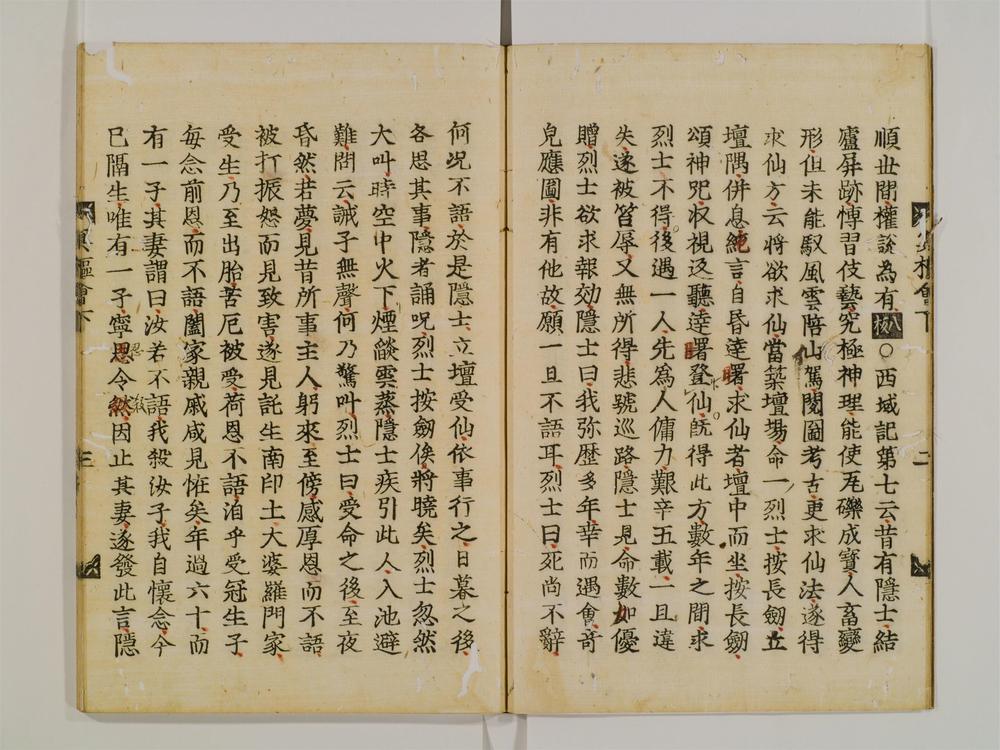 順世間權說為有八板○西域記第七云昔有隱士結
廬屏跡博習伎藝究極神理能使瓦礫成寶人畜變
形但未能馭風雲陪仙駕閱圖考古更求仙法遂得
求仙方云將欲求仙當築壇場命一烈士按長劒立
壇隅併息絕言自昏達曙求仙者壇中而坐按長劒
頌神呪収視返聽達曙登仙旣得此方數年之間求
烈士不得後遇一人先為人傭力艱辛五載一旦違
失遂被笞辱又無所得悲號巡路隱士見命數加優
贈烈士欲求報効隱士曰我弥歷多年幸而遇會奇
皃應圖非有他故願一旦不語耳烈士曰死尚不辭
何况不語於是隱士立壇受仙依事行之日暮之後
各思其事隱者誦呪烈士按劒俟將曉矣烈士忽然
大叫時空中火下煙燄雲蒸隱士疾引此人入池避
難問云誡子無聲何乃驚叫烈士曰受命之後至夜
昏然若夢見昔所事主人躬來至傍感厚恩而不語
被打振怒而見致害遂見託生南印土大婆羅門家
受生乃至出胎苦厄被受荷恩不語洎乎受冠生子
每念前恩而不語闔家親戚咸見恠矣年過六十而
有一子其妻謂曰汝若不語我殺汝子我自懷念今
已隔生唯有一子寧忍令殺因止其妻遂發此言隱
樞會下
三